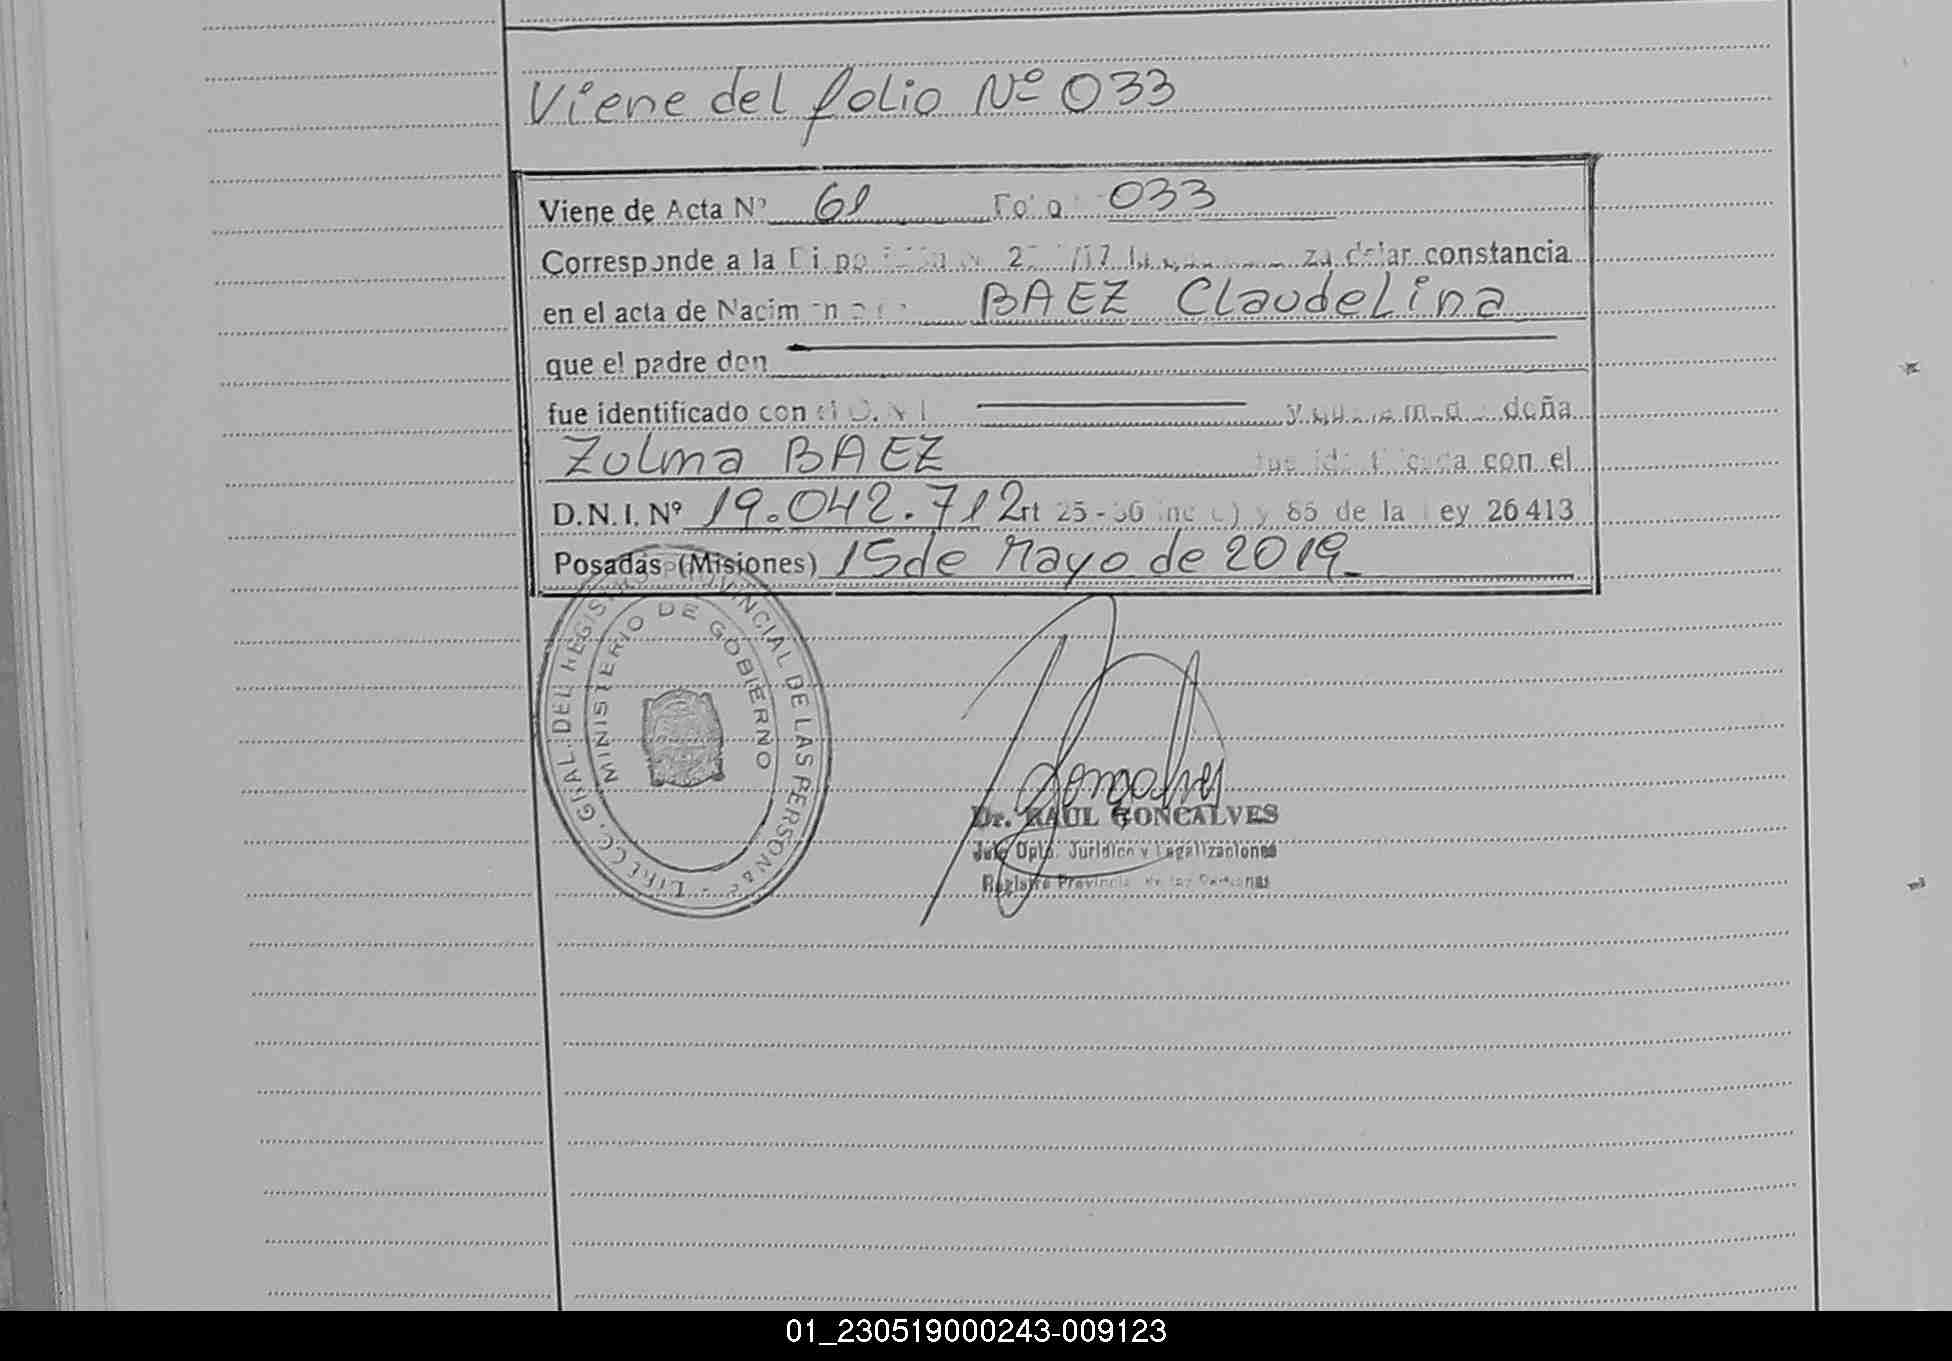 Viene del folio Nº 033
Viene de Acta Nº 61 Folio 033
Corresponde a la constancia
en el acta de Nacim BAEZ Claudelina
que el padre don
fue identificado con el D.N.I. doña
Zulma BAEZ con el
D.N.I. Nº 19.042.712 rt 25 - y 85 de la ey 26413
Posadas (Misiones) 15 de Mayo de 2019
DIRECC. GRAL. DEL REGISTRO PROVINCIAL DE LAS PERSONAS
MINISTERIO DE GOBIERNO
Dr. RAUL GONCALVES
Jefe Dpto. Jurídico y Legalizaciones
Registro Provincial de las Personas
01_230519000243-009123